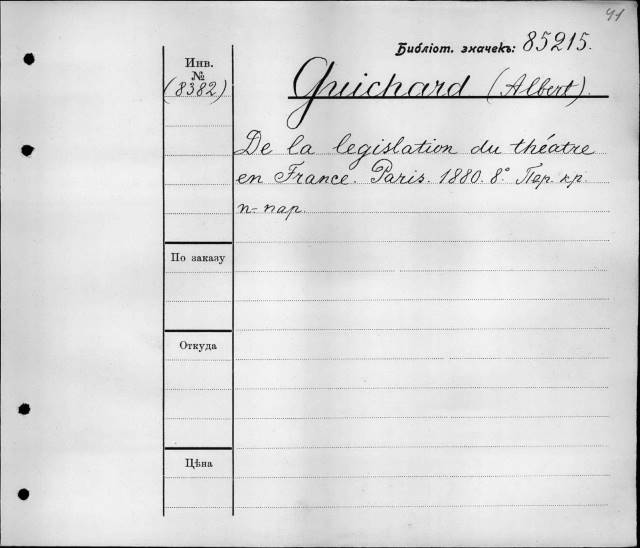 41
Библіот. значекъ: 85215.
Инв.
№
(8382)
Guichard (Albert).
De la legislation du théatre
en France. Paris. 1880. 8° Пер. кр.
п-пар.
По заказу
Откуда
Цѣна